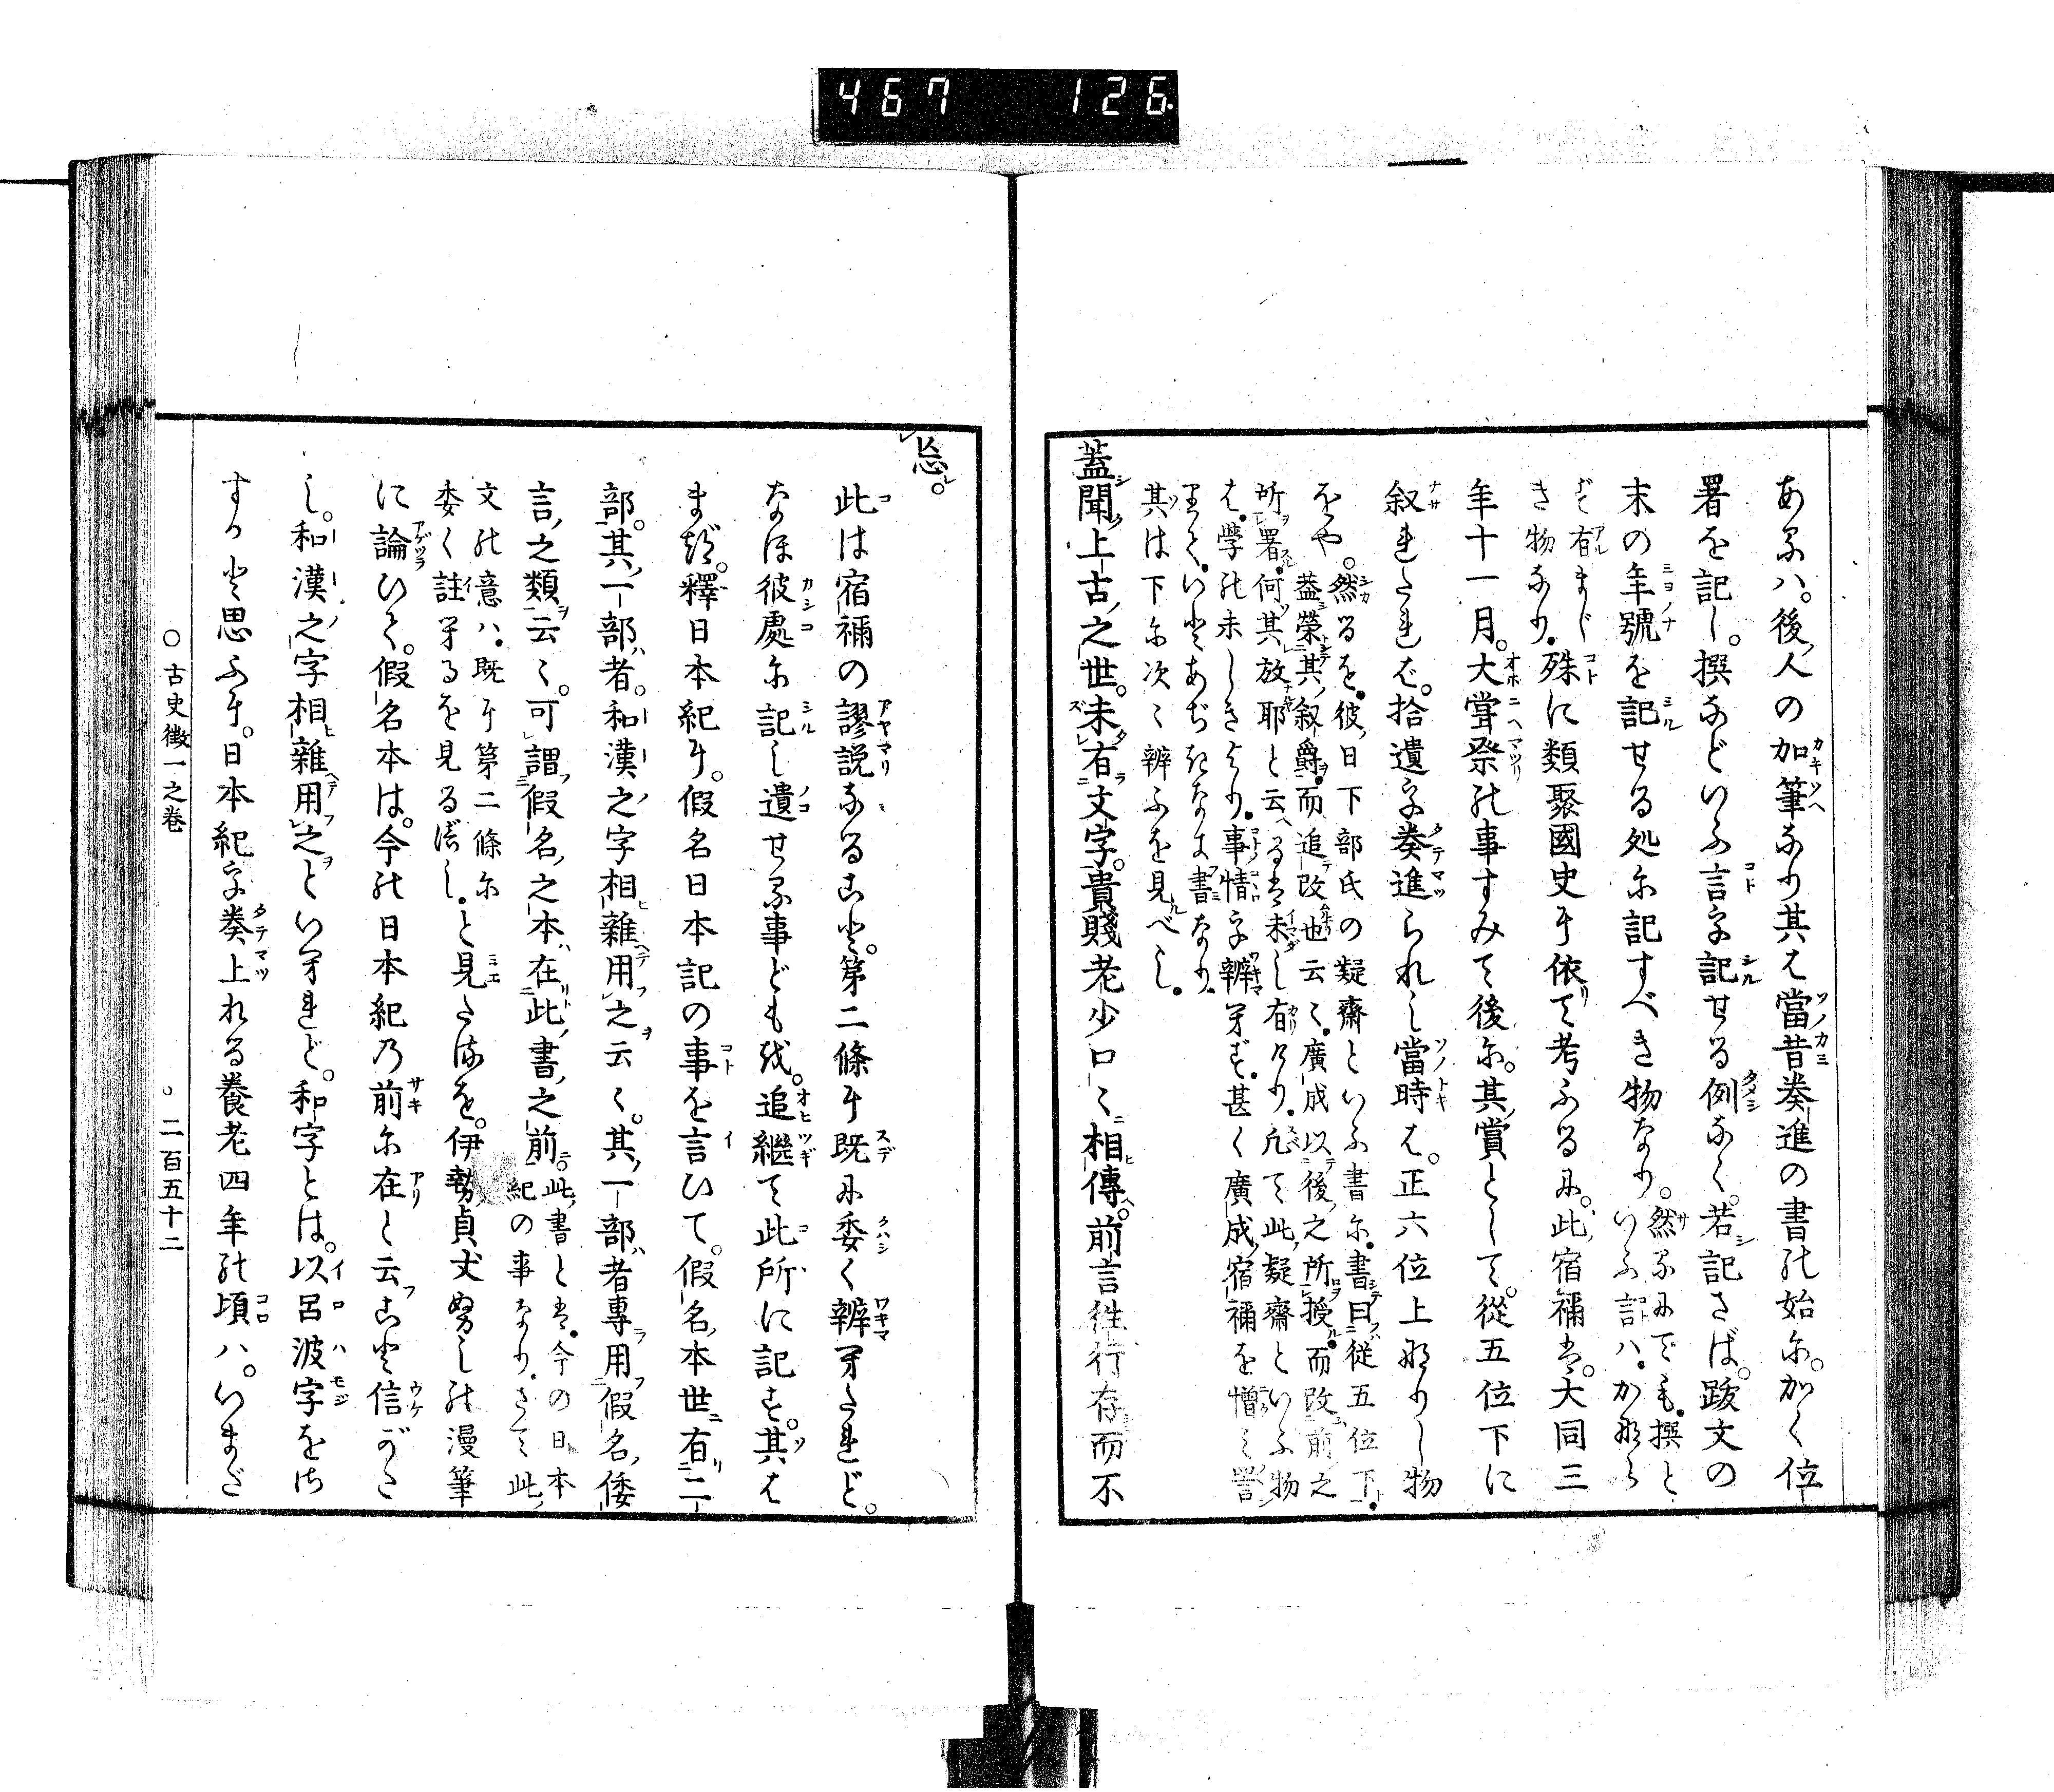 467 126
あるハ。後人の加筆なり其は當昔奏進の書の始に。かく位
署を記し。撰などいふ言を記せる例なく。若記さば。跋文の
末の年號を記せる処に記すべき物なり。然るにても。撰と
いふ言ハ。かならず有まじき物なり。殊に類聚國史に依て考ふるに。此宿禰は。大同三
年十一月。大甞祭の事すみて後に。其賞として。從五位下に
叙れたれば。拾遺を奏進られし當時は。正六位上なりし物
をや。然るを。彼日下部氏の疑齋といふ書に。書曰從五位下。
蓋榮其叙爵。而追改也云々。廣成以後之所授。而改前之
所署。何其放耶と云へるは未し有けり。凡て此疑齋といふ物
は。學の未しきより。事情を辨へず。甚く廣成宿禰を憎み詈
りて。いとあぢきなき書なり。
其は下に次々辨ふを見べし。
蓋聞上古之世。未有文字。貴賤老少口々相傳。前言往行存而不
忘。
此は宿禰の謬説なること。第二條に既に委く辨へたれど。
なほ彼處に記し遺せる事どもを。追繼て此所に記す。其は
まづ。釋日本紀に。假名日本記の事を言ひて。假名本世有二
部。其一部者。和漢之字相雜用之云々。其一部者專用假名倭
言之類云々。可謂假名之本在此書之前。此書とは。今の日本
紀の事なり。さて此
文の意ハ。既に第二條に
委く註せるを見るべし。と見えたるを。伊勢貞丈ぬしの漫筆
に論ひて。假名本は。今の日本紀の前に在と云こと信がた
し。和漢之字相雜用之といへれど。和字とは。以呂波字をさ
すかと思ふに。日本紀を奏上れる養老四年の頃ハ。いまだ
○古史徴一之巻
○二百五十二